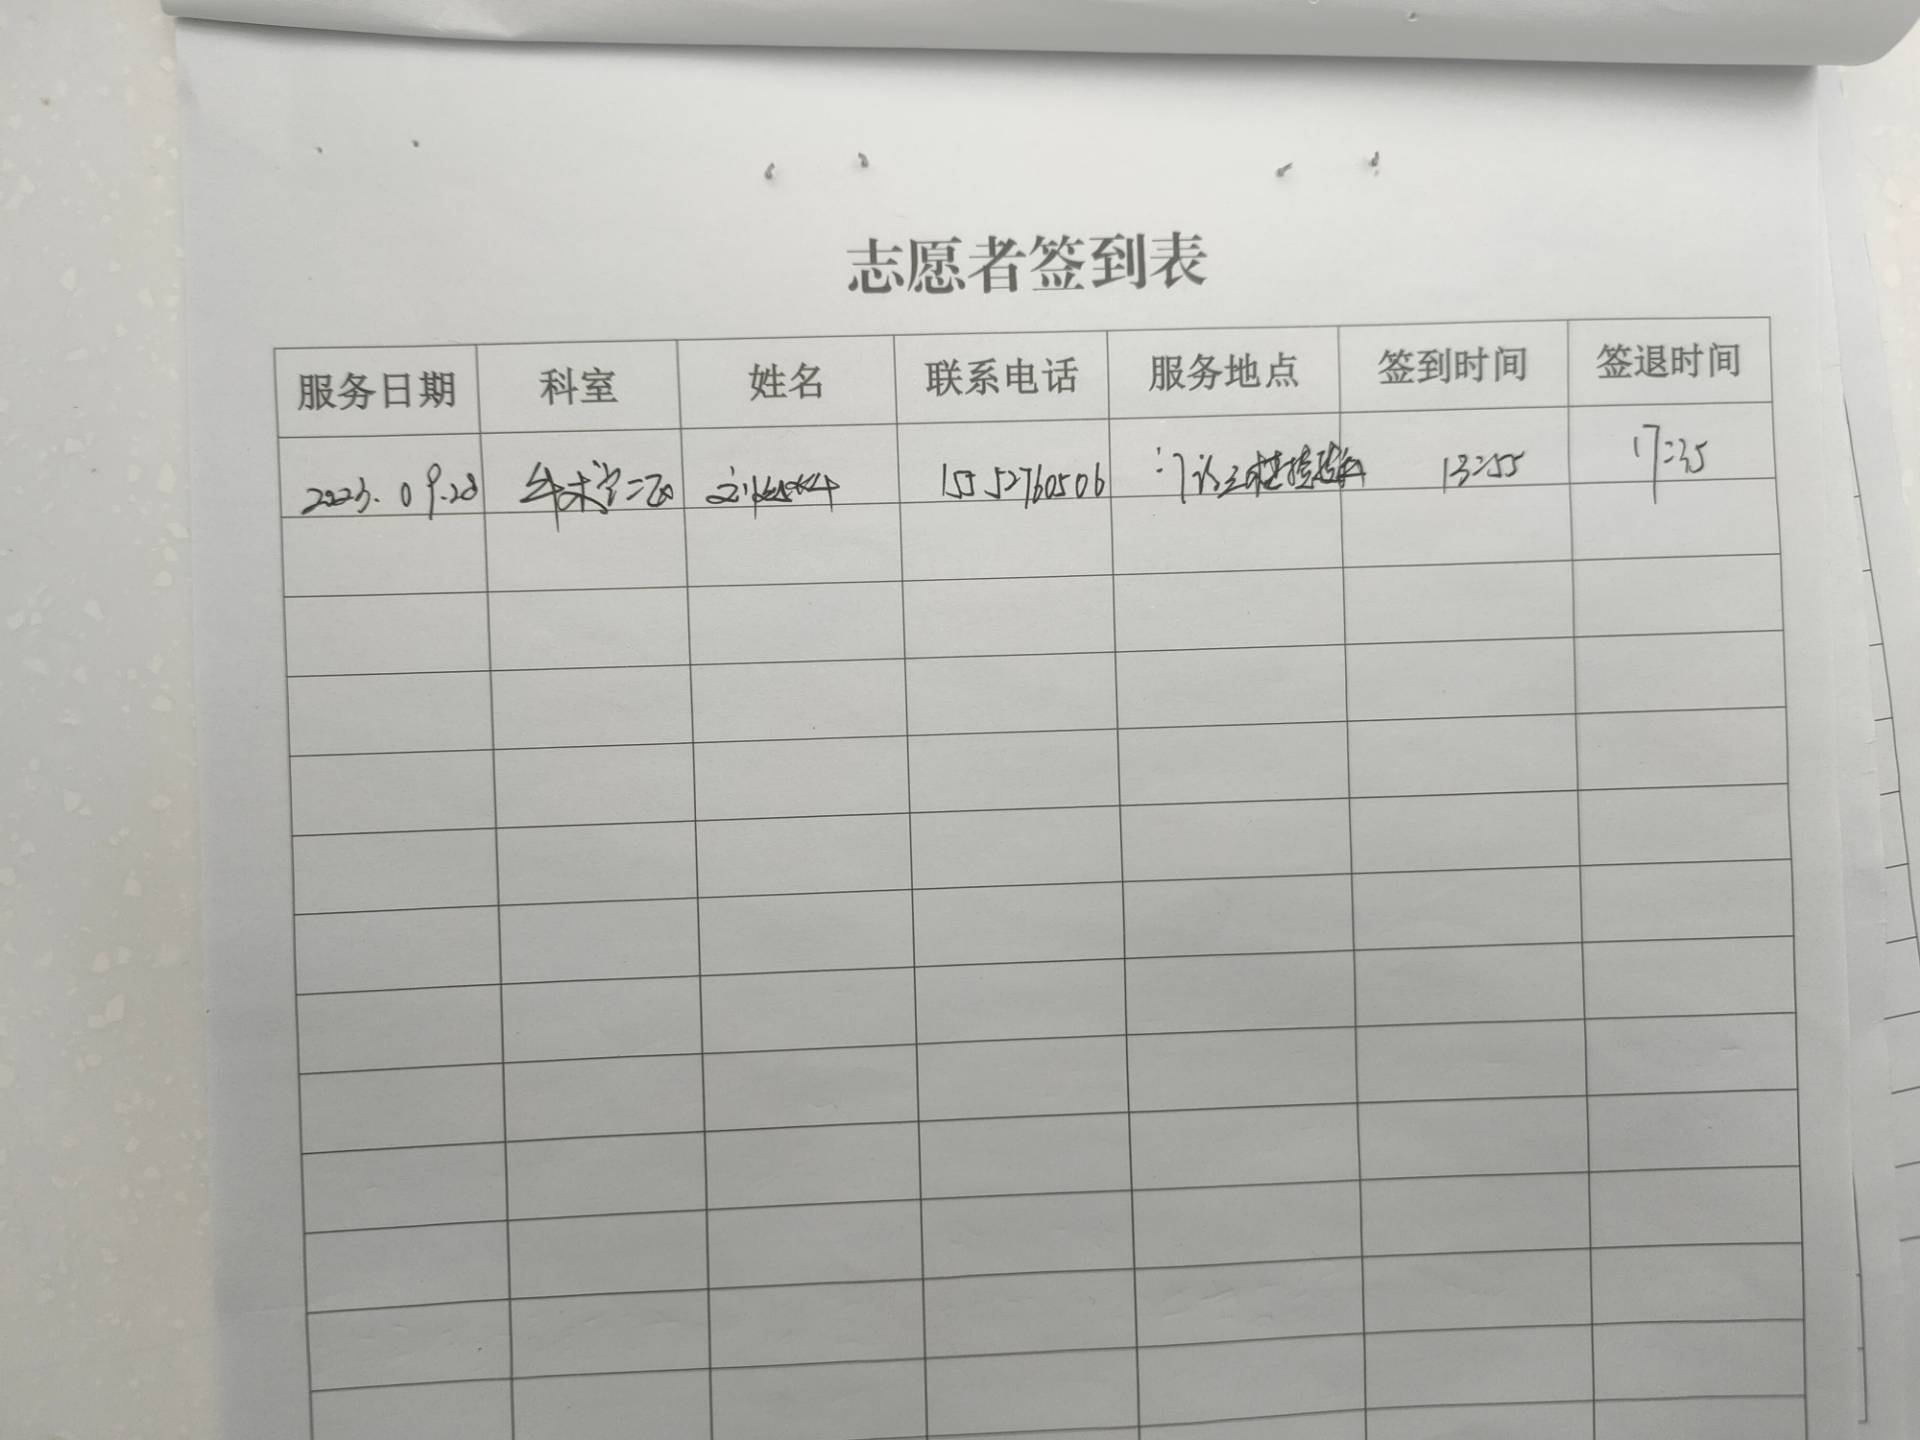 志愿者签到表
服务日期 科室 姓名 联系电话 服务地点 签到时间 签退时间
2023.09.28 15552760506 13:55 17:35